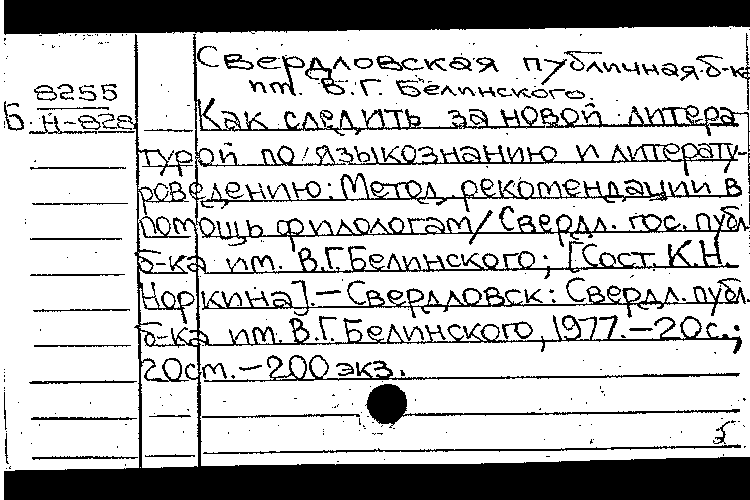 Свердловская публичная б-ка
им. В.Г. Белинского.
8255
Б Н-828
Как следить за новой литера-
турой по языкознанию и литерату-
роведению: Метод. рекомендации в
помощь филологам / Свердл. гос. публ.
б-ка им. В.Г. Белинского; [Сост. К.Н.
Норкина]. — Свердловск: Свердл. публ.
б-ка им. В.Г. Белинского, 1977. — 20с.;
20см. — 200 экз.